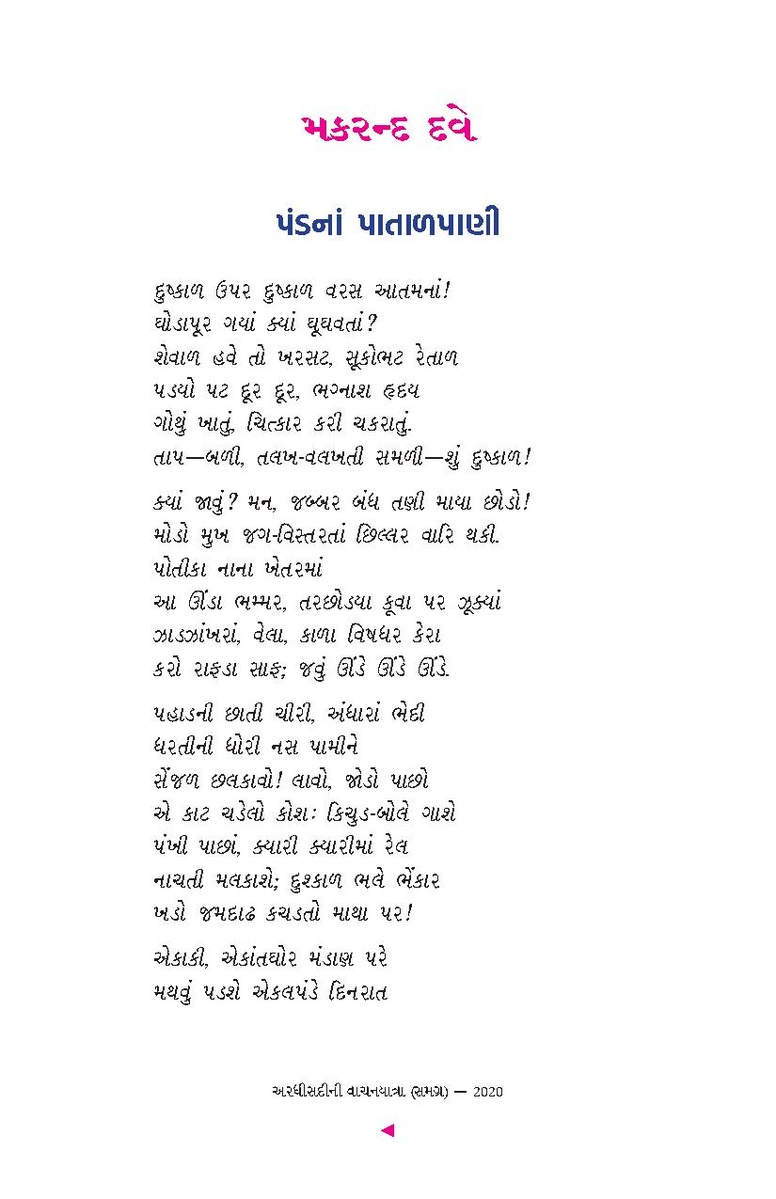 મકરન્દ દવે
પંડનાં પાતાળપાણી
દુષ્કાળ ઉપર દુષ્કાળ વરસ આતમનાં!
ઘોડાપૂર ગયાં ક્યાં ઘૂઘવતાં?
શેવાળ હવે તો ખરસટ, સૂકોભટ રેતાળ
પડયો પટ દૂર દૂર, ભગ્નાશ હૃદય
ગોથું ખાતું, ચિત્કાર કરી ચકરાતું.
તાપ—બળી, તલખ-વલખતી સમળી—શું દુષ્કાળ!
ક્યાં જાવું? મન, જબ્બર બંધ તણી માયા છોડો!
મોડો મુખ જગ-વિસ્તરતાં છિલ્લર વારિ થકી.
પોતીકા નાના ખેતરમાં
આ ઊંડા ભમ્મર, તરછોડયા કૂવા પર ઝૂક્યાં
ઝાડઝાંખરાં, વેલા, કાળા વિષધર કેરા
કરો રાફડા સાફ; જવું ઊંડે ઊંડે ઊંડે.
પહાડની છાતી ચીરી, અંધારાં ભેદી
ધરતીની ધોરી નસ પામીને
સેંજળ છલકાવો! લાવો, જોડો પાછો
એ કાટ ચડેલો કોશઃ કિચુડ-બોલે ગાશે
પંખી પાછાં, ક્યારી ક્યારીમાં રેલ
નાચતી મલકાશે; દુશ્કાળ ભલે ભેંકાર
ખડો જમદાઢ કચડતો માથા પર!
એકાકી, એકાંતઘોર મંડાણ પરે
મથવું પડશે એકલપંડે દિનરાત
અરધીસદીની વાચનયાત્રા (સમગ્ર) — 2020